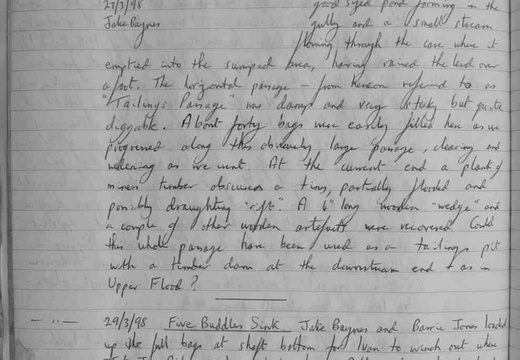 27/3/98 good sized pond forming in the
Jake Baynes gully and a small stream
flowing through the cave where it
emptied into the sumped area, having raised the level over
a foot. The horizontal passage – from hereon referred to as
"Tailings Passage" was damp and very sticky but quite
diggable. About forty bags were easily filled here as we
progressed along this obviously large passage, clearing and
widening as we went. At the current end a plank of
miners timber obscures a tiny, partially flooded and
possibly draughting "rift". A 6" long wooden "wedge" and
a couple of other wooden artefacts were recovered. Could
this whole passage have been used as a tailings pit
with a timber dam at the downstream end + as in
Upper Flood?
— " — 29/3/98 Five Buddles Sink Jake Baynes and Barrie Jones loaded
up the full bags at shaft bottom for Ivan to winch out when